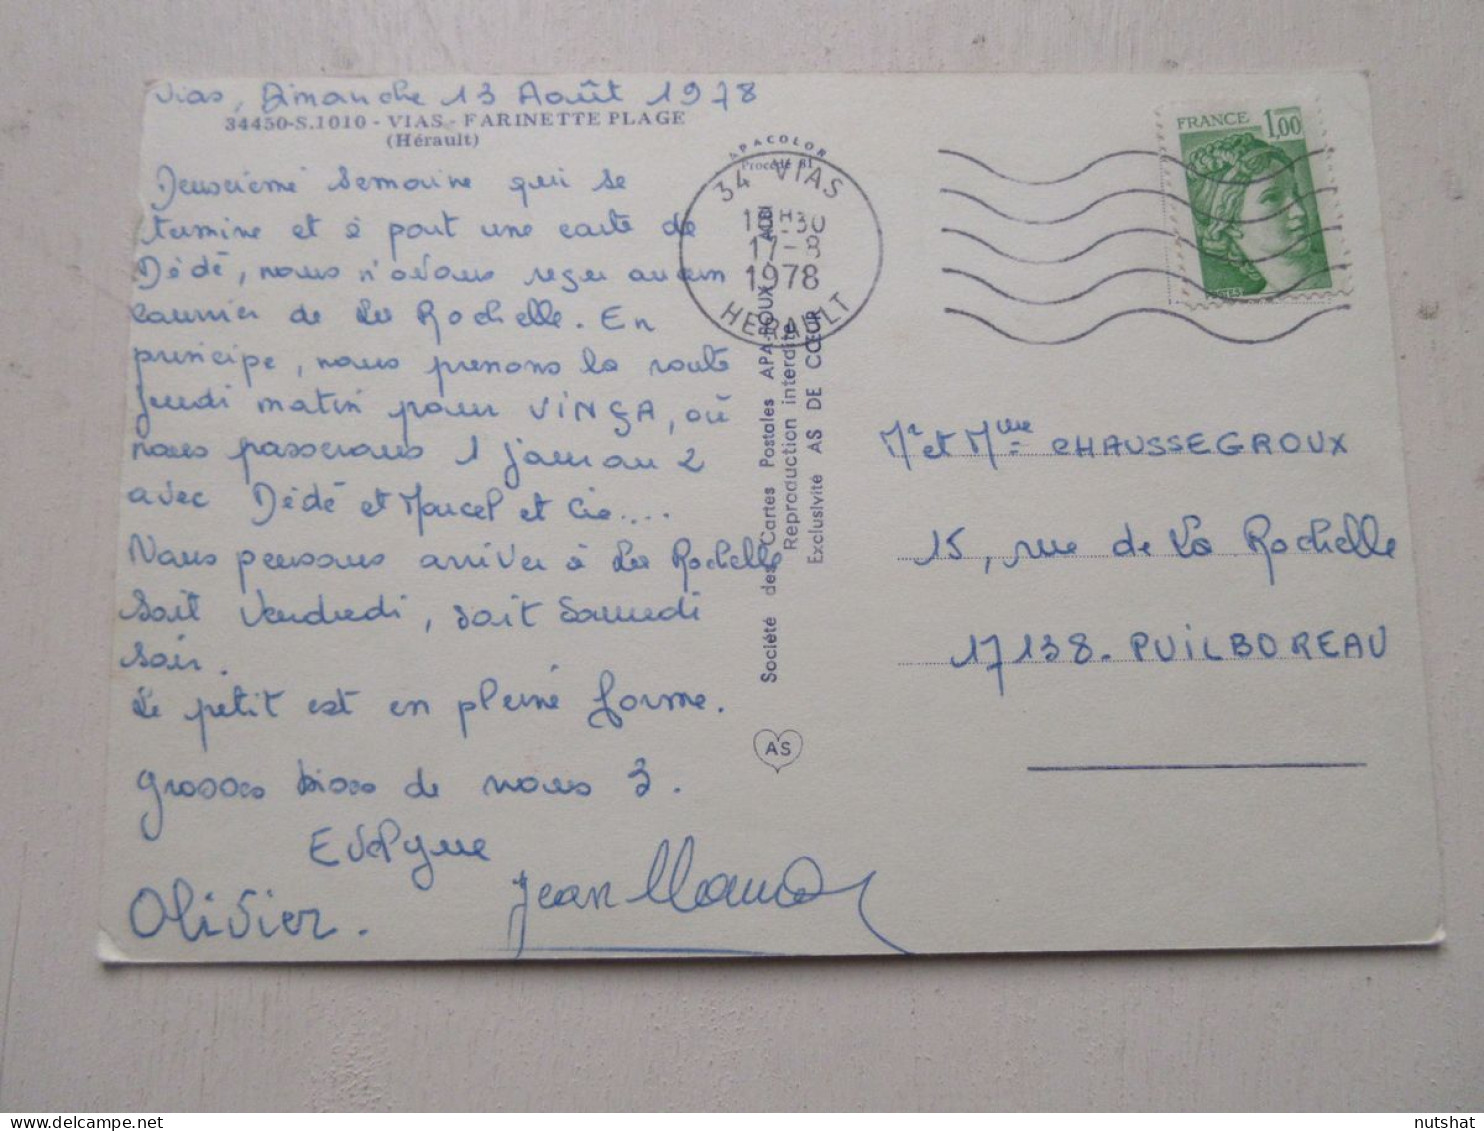 Vias, Dimanche 13 Août 1978
34450-S.1010 - VIAS - FARINETTE PLAGE
(Hérault)
Deuxième semaine qui se
termine et à part une carte de
Dédé, nous n'avons reçu aucun
courrier de La Rochelle. En
principe, nous prenons la route
Jeudi matin pour VINÇA, où
nous passerons 1 jour ou 2
avec Dédé et Marcel et Cie....
Nous pensons arriver à La Rochelle
soit Vendredi, soit Samedi
soir.
Le petit est en pleine forme.
Grosses bises de nous 3.
Evelyne
Olivier.
Jean
APACOLOR
Procédé 81
34 VIAS
17-8
1978
HERAULT
Société des Cartes Postales APA-POUX - ALBI
Reproduction interdite
Exclusivité AS DE CŒUR
AS
FRANCE 1,00
POSTES
Mr et Mme CHAUSSEGROUX
15, rue de La Rochelle
17138. PUILBOREAU
nutshat